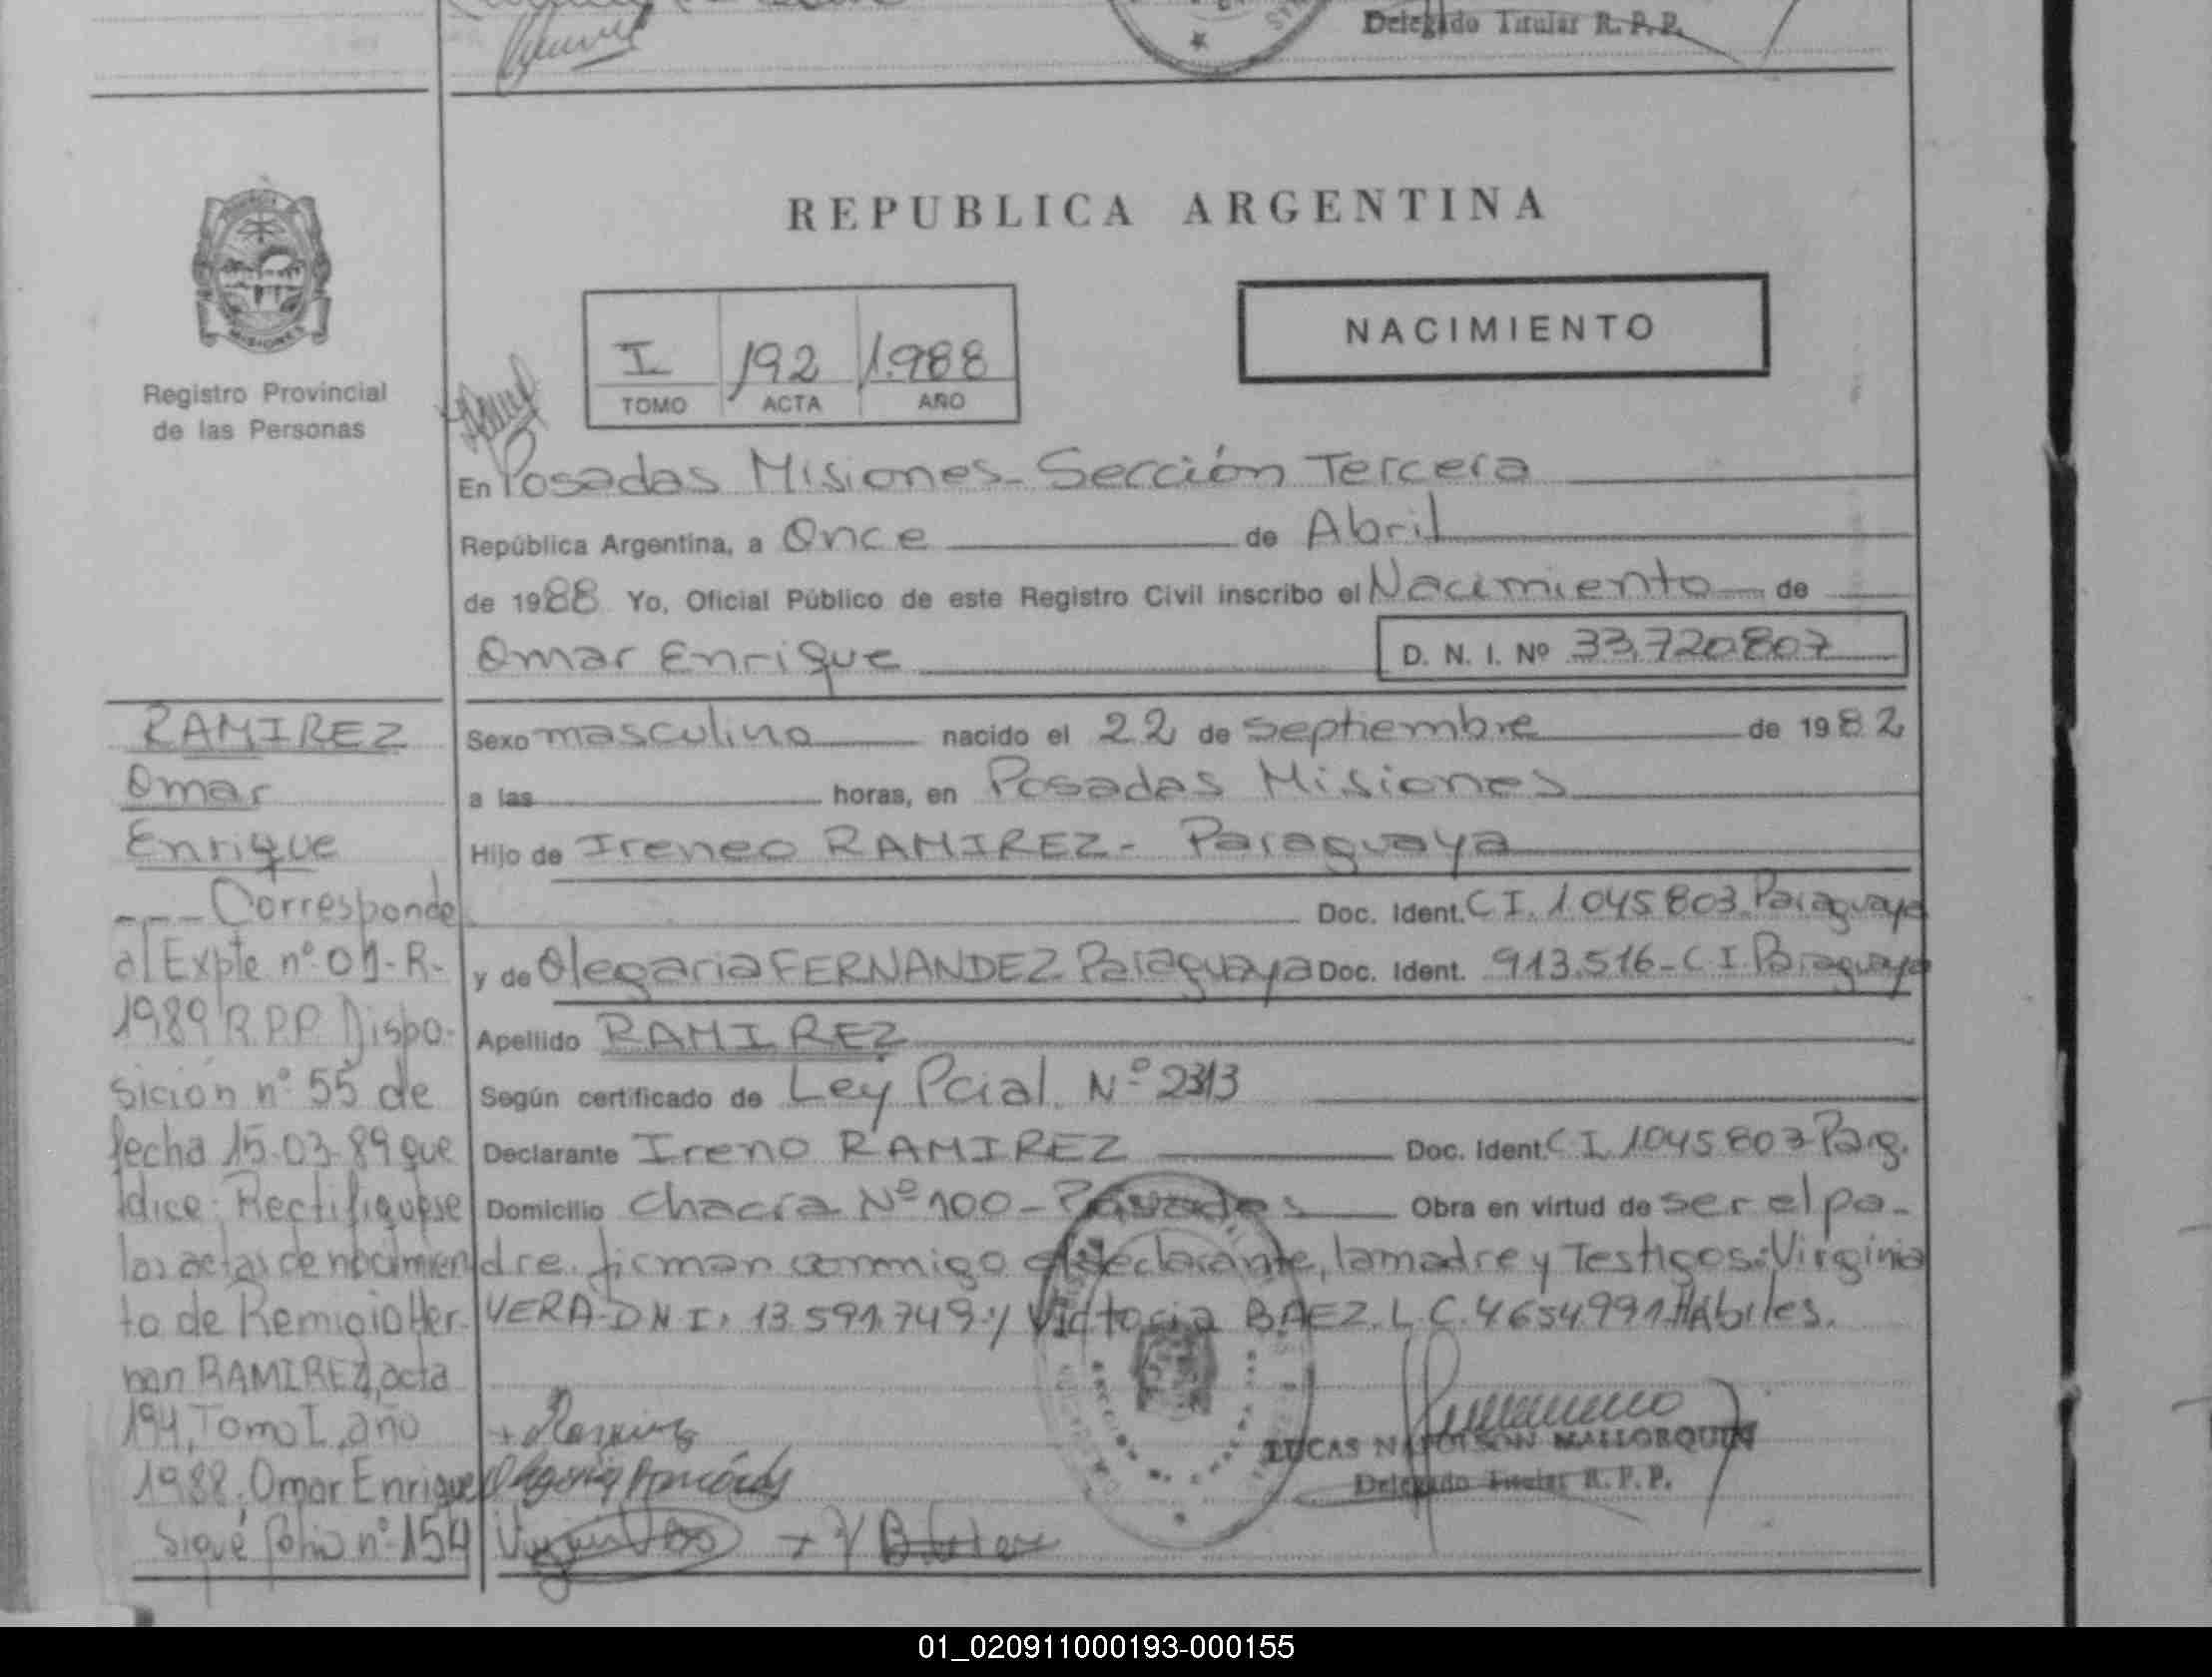 Delegado Titular R.P.P.
REPUBLICA ARGENTINA
MISIONES
Registro Provincial
de las Personas
I 192 1.988
TOMO ACTA AÑO
NACIMIENTO
En Posadas Misiones - Sección Tercera
República Argentina, a Once de Abril
de 1988 Yo, Oficial Público de este Registro Civil inscribo el Nacimiento de
Omar Enrique D. N. I. Nº 33.720807
Sexo masculino nacido el 22 de septiembre de 1982
a las horas, en Posadas Misiones
Hijo de Ireneo RAMIREZ - Paraguaya
Doc. Ident. C I. 1.045803. Paraguaya
y de Olegaria FERNANDEZ Paraguaya Doc. Ident. 913.516 - C I. Paraguaya
Apellido RAMIREZ
Según certificado de Ley Pcial. Nº 2313
Declarante Ireno RAMIREZ Doc. Ident. C I. 1045803 Parg.
Domicilio Chacra Nº 100 - Posadas Obra en virtud de ser el pa-
dre. firman conmigo el declarante, la madre y Testigos: Virginia
VERA - D N I. 13.591.749 y Victoria BAEZ. L. C. 4654991. Hábiles.
LUCAS NAPOLEON MALLORQUIN
Delegado Titular R.P.P.
RAMIREZ
Omar
Enrique
---- Corresponde
al Expte nº 01-R-
1989 R.P.P. Dispo-
sición nº 55 de
fecha 15-03-89 que
dice: Rectifíquese
las actas de nacimien
to de Remigio Her-
nan RAMIREZ, acta
194, Tomo I, año
1988, Omar Enrique
sigue folio nº 154
01_020911000193-000155